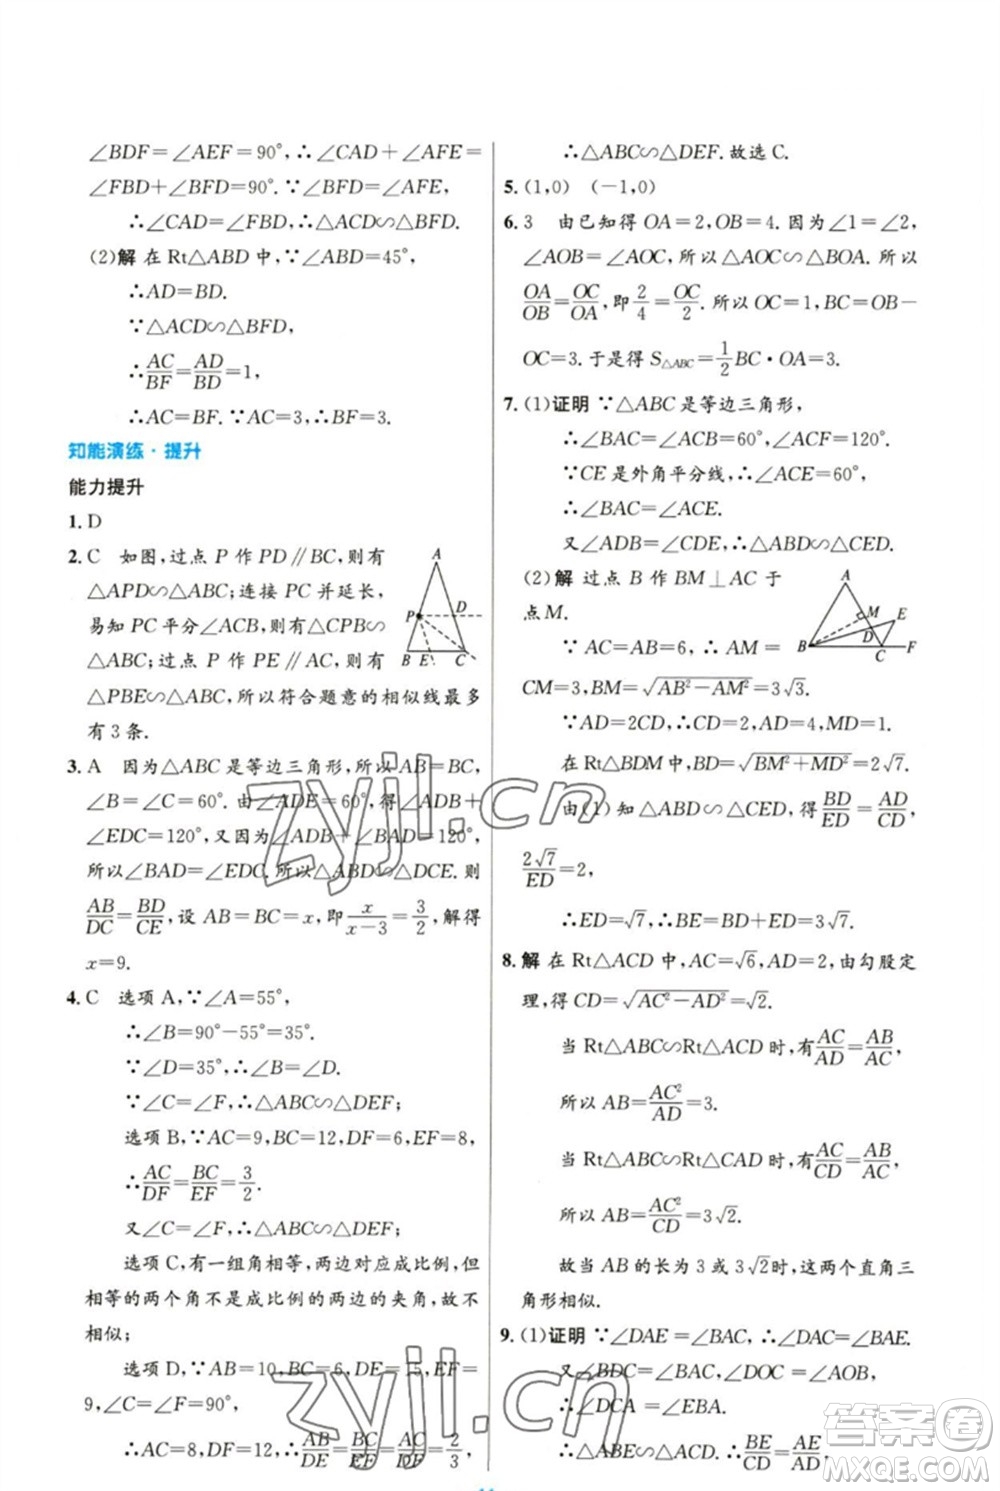 ∠BDF=∠AEF=90°,∴∠CAD+∠AFE=
∠FBD+∠BFD=90°.∵∠BFD=∠AFE,
∴∠CAD=∠FBD,∴△ACD∽△BFD.
(2)解 在Rt△ABD中,∵∠ABD=45°,
∴AD=BD.
∵△ACD∽△BFD,
∴AC/BF=AD/BD=1,
∴AC=BF.∵AC=3,∴BF=3.
知能演练·提升
能力提升
1.D
2.C 如图,过点P作PD∥BC,则有
△APD∽△ABC;连接PC并延长,
易知PC平分∠ACB,则有△CPB∽
△ABC;过点P作PE∥AC,则有
△PBE∽△ABC,所以符合题意的相似线最多
有3条.
A
P
D
B
E
C
3.A 因为△ABC是等边三角形,所以AB=BC,
∠B=∠C=60°.由∠ADE=60°,得∠ADB+
∠EDC=120°,又因为∠ADB+∠BAD=120°,
所以∠BAD=∠EDC.所以△ABD∽△DCE.则
AB/DC=BD/CE,设AB=BC=x,即x/(x-3)=3/2,解得
x=9.
4.C 选项A,∵∠A=55°,
∴∠B=90°-55°=35°.
∵∠D=35°,∴∠B=∠D.
∵∠C=∠F,∴△ABC∽△DEF;
选项B,∵AC=9,BC=12,DF=6,EF=8,
∴AC/DF=BC/EF=3/2.
又∠C=∠F,∴△ABC∽△DEF;
选项C,有一组角相等,两边对应成比例,但
相等的两个角不是成比例的两边的夹角,故不
相似;
选项D,∵AB=10,BC=6,DE=15,EF=
9,∠C=∠F=90°,
∴AC=8,DF=12,∴AB/DE=BC/EF=AC/DF=2/3,
∴△ABC∽△DEF.故选C.
5.(1,0) (-1,0)
6.3 由已知得OA=2,OB=4.因为∠1=∠2,
∠AOB=∠AOC,所以△AOC∽△BOA.所以
OA/OB=OC/OA,即2/4=OC/2.所以OC=1,BC=OB-
OC=3.于是得S△ABC=1/2BC·OA=3.
7.(1)证明 ∵△ABC是等边三角形,
∴∠BAC=∠ACB=60°,∠ACF=120°.
∵CE是外角平分线,∴∠ACE=60°,
∴∠BAC=∠ACE.
又∠ADB=∠CDE,∴△ABD∽△CED.
(2)解 过点B作BM⊥AC于
点M.
∵AC=AB=6,∴AM=
CM=3,BM=√(AB²-AM²)=3√3.
A
M
E
D
B
C
F
∵AD=2CD,∴CD=2,AD=4,MD=1.
在Rt△BDM中,BD=√(BM²+MD²)=2√7.
由(1)知△ABD∽△CED,得BD/ED=AD/CD,
2√7/ED=2,
∴ED=√7,∴BE=BD+ED=3√7.
8.解 在Rt△ACD中,AC=√6,AD=2,由勾股定
理,得CD=√(AC²-AD²)=√2.
当Rt△ABC∽Rt△ACD时,有AC/AD=AB/AC,
所以AB=AC²/AD=3.
当Rt△ABC∽Rt△CAD时,有AC/CD=AB/AC,
所以AB=AC²/CD=3√2.
故当AB的长为3或3√2时,这两个直角三
角形相似.
9.(1)证明 ∵∠DAE=∠BAC,∴∠DAC=∠BAE.
又∠BDC=∠BAC,∠DOC=∠AOB,
∴∠DCA=∠EBA.
∴△ABE∽△ACD.∴BE/CD=AE/AD,
zyjl.cn
zyjl.cn
答案圈
MXQE.COM